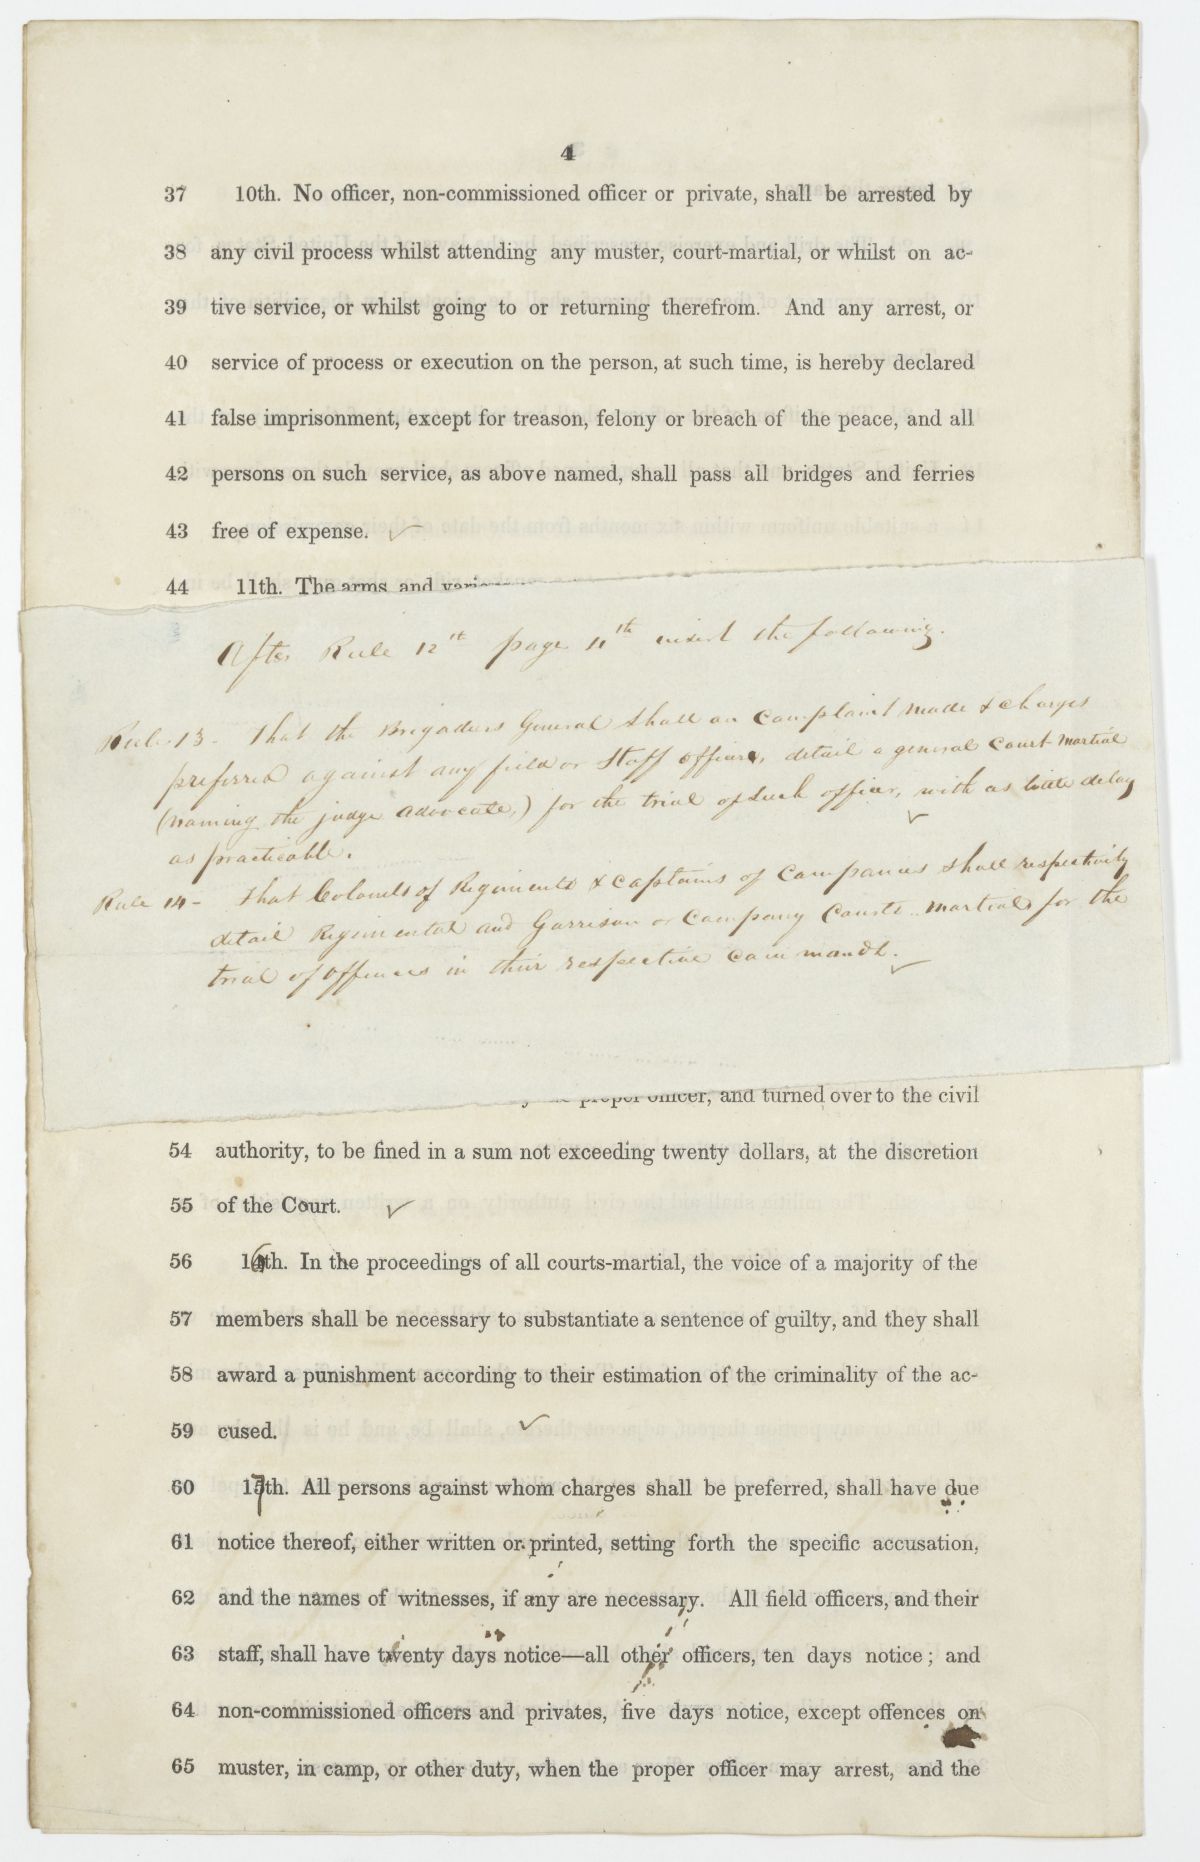 4
37 10th. No officer, non-commissioned officer or private, shall be arrested by
38 any civil process whilst attending any muster, court-martial, or whilst on ac-
39 tive service, or whilst going to or returning therefrom. And any arrest, or
40 service of process or execution on the person, at such time, is hereby declared
41 false imprisonment, except for treason, felony or breach of the peace, and all
42 persons on such service, as above named, shall pass all bridges and ferries
43 free of expense.
44 11th. The arms and
After Rule 12th page 4th insert the following.
Rule 13 - That the Brigadiers General shall on complaint made & charges
preferred against any field or Staff officer, detail a general Court Martial
(naming the judge advocate,) for the trial of such officer, with as little delay
as practicable.
Rule 14 - That Colonels of Regiments & Captains of Companies shall respectively
detail Regimental and Garrison or Company Courts-martial for the
trial of offences in their respective commands.
proper officer, and turned over to the civil
54 authority, to be fined in a sum not exceeding twenty dollars, at the discretion
55 of the Court.
56 16th. In the proceedings of all courts-martial, the voice of a majority of the
57 members shall be necessary to substantiate a sentence of guilty, and they shall
58 award a punishment according to their estimation of the criminality of the ac-
59 cused.
60 17th. All persons against whom charges shall be preferred, shall have due
61 notice thereof, either written or printed, setting forth the specific accusation,
62 and the names of witnesses, if any are necessary. All field officers, and their
63 staff, shall have twenty days notice—all other officers, ten days notice; and
64 non-commissioned officers and privates, five days notice, except offences on
65 muster, in camp, or other duty, when the proper officer may arrest, and the